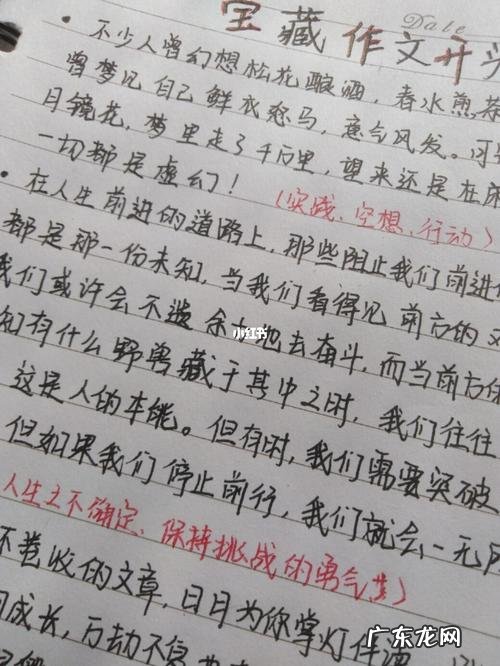 宝藏作文开头
Date
· 不少人曾幻想松花酿酒，春水煎茶
曾梦见自己鲜衣怒马，意气风发。可
月镜花，梦里走了千万里，望来还是在床
一切都是虚幻！(实践、空想、行动)
· 在人生前进的道路上，那些阻止我们前进
都是那一份未知，当我们看得见前方的
我们或许会不遗余力地去奋斗，而当前方
知有什么野兽藏于其中之时，我们往往
这是人的本能。但有时，我们需要突破
但如果我们停止前行，我们就会一无
人生之不确定、保持挑战的勇气类)
不卷收的文章，日日为你掌灯
成长，万劫不复
小红书
广东龙网
GDLONG.COM